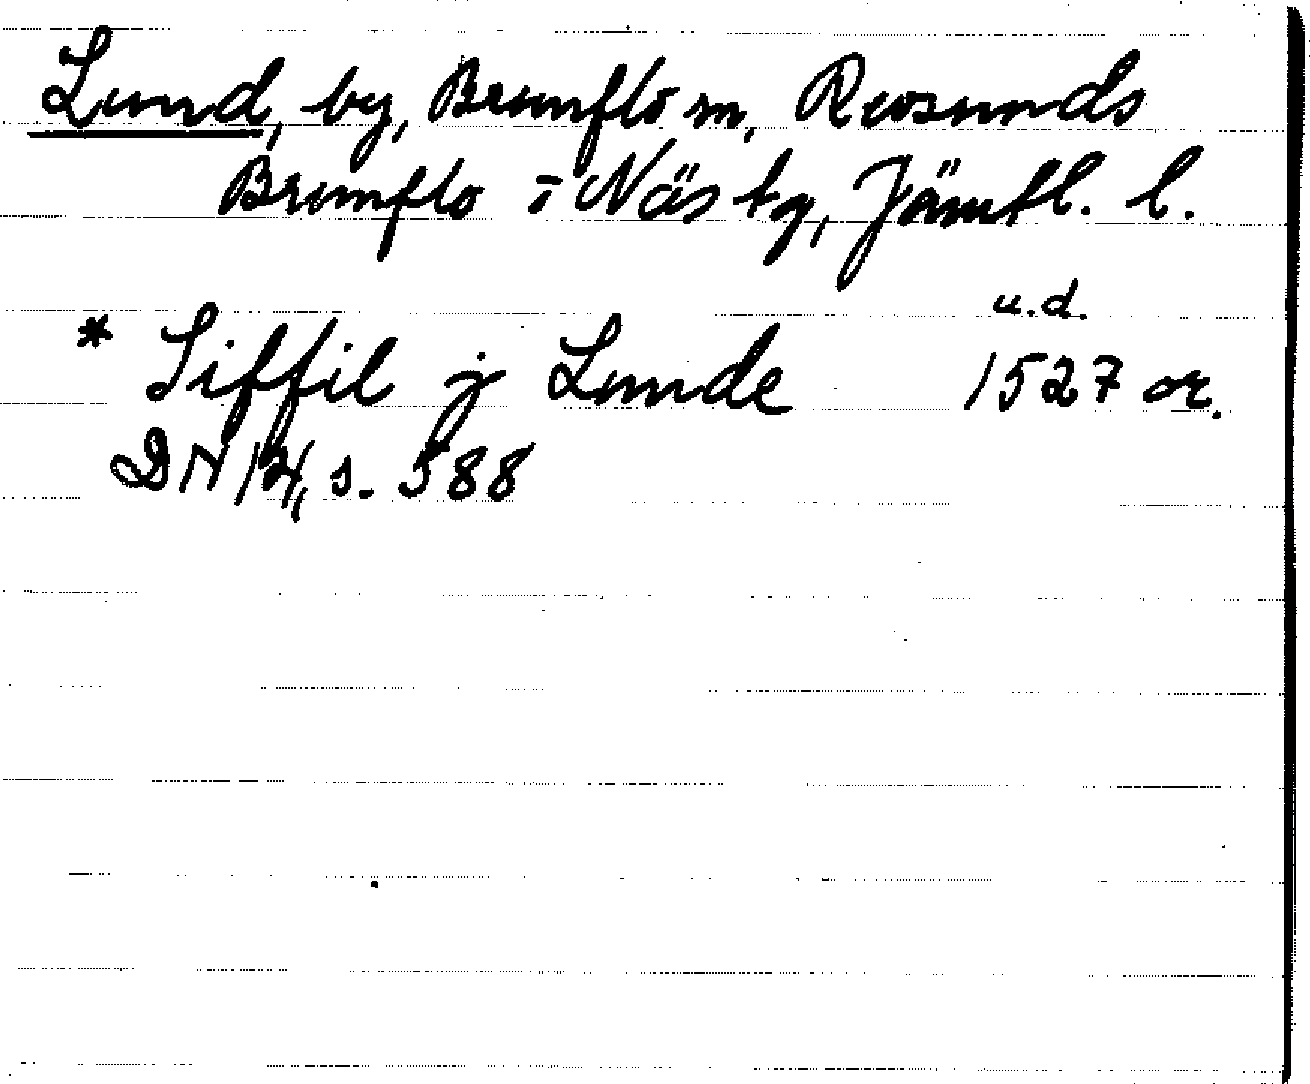 Lund, by, Brunflo sn, Revsunds
Brunflo o Näs tg, Jämtl. l.
u.d.
* Siffil j Lunde 1527 or.
DN 14, s. 588